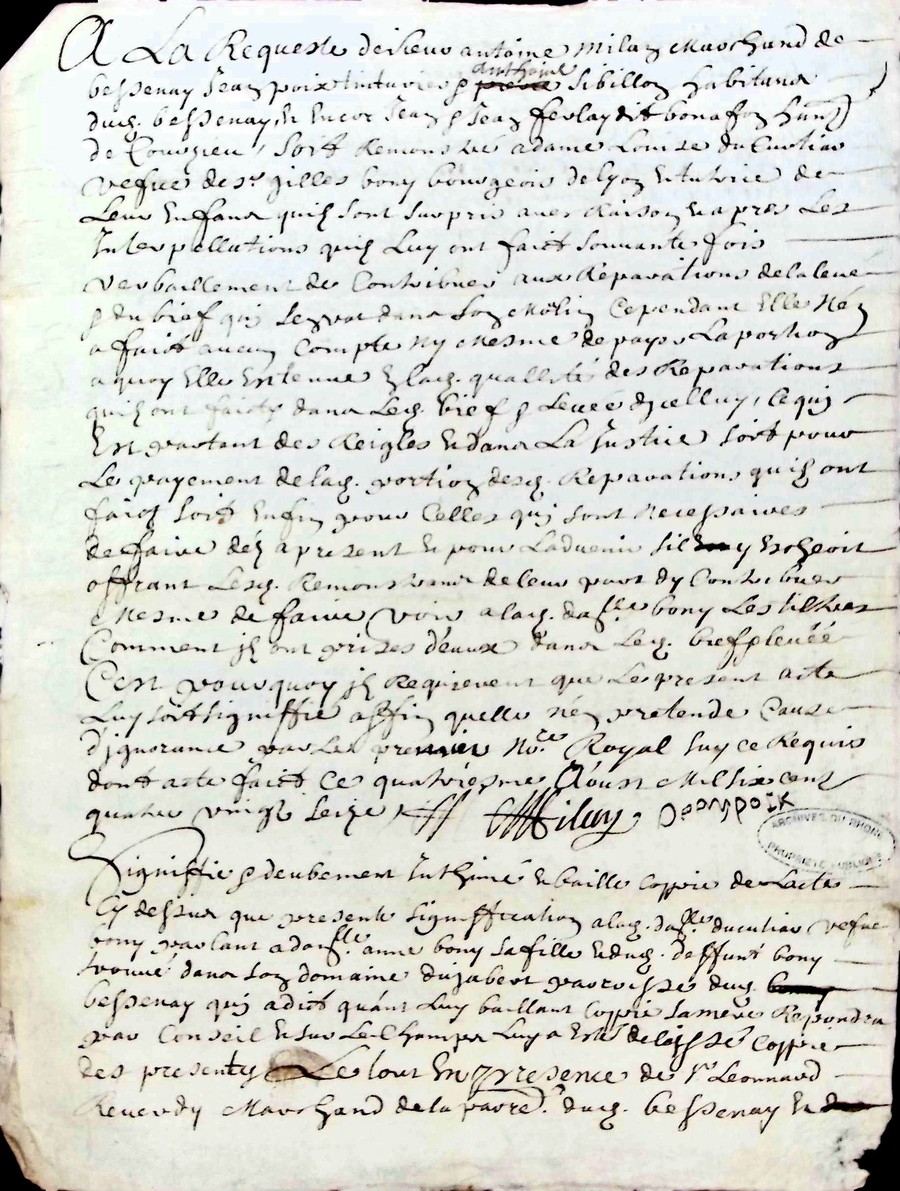 A La Requeste de sieur antoine Milan Marchand de
bessenay Jean poix tinturier & anthoine sibillon habitans
dud. bessenay, et encor Jean & Jean ferlay dit bonafon hans
de Courzieu, soit Remonstré a dame Louise du Curtiau
vefue de sr. gilles bony bourgeois de lyon et tutrice de
Leurs Enfans quilz sont surpris avec Raison et apres Les
Interpellations quilz Luy ont faict souuante fois
verballement de Contribuer aux Reparations de la leuée
& du bief quy se voit dans son Molin Cependant Elle Nen
a faict aucun Compte Ny Mesme de payer La portion
a quoy Elle Est tenue En lad. quallité des Reparations
quilz ont faictz dans Led. bief & Leuée dycelluy, Ce quy
Est partant des Reigles et dans La Justice soit pour
Le payement de lad. portion desd. Reparations quilz ont
faictz soit enfin pour Celles quy sont Necessaires
de faire dez a present et pour Laduenir sil y Escheoit
offrant Lesd. Remonstrans de leur part dy Contribuer
Mesme de faire voir a lad. dalle. bony Les tiltres
Comment ilz ont prises deaux dans Led. bief & leuéé
C'est pourquoy ilz Requierent que Le present acte
Luy soit signiffié affin quelle nen pretende Cause
dignorance par Le premier Nore. Royal sur ce Requis
dont acte faict Ce quatriesme d'aoust Mil six cent
quatre vingt seize
Milan Jean poix
ARCHIVES DU RHONE
PROPRIETE PUBLIQUE
Signiffié & deubement Inthimé et baillé Coppie de Lacte
Cy dessus que presente signiffication a lad. dalle. du curtiau vefue
bony parlant a dalle. anne bony sa fille et dud. deffunt bony
trouué dans son domaine du jabert parroisse dud.
bessenay quy a dict quant Luy baillant Coppie sa mere Repondra
par Conseil et sur Le Champs Luy a Esté delaissé Coppie
des presentes Le tout En presence de sr Leonnard
Reuerdy Marchand de la parre. dud. bessenay et